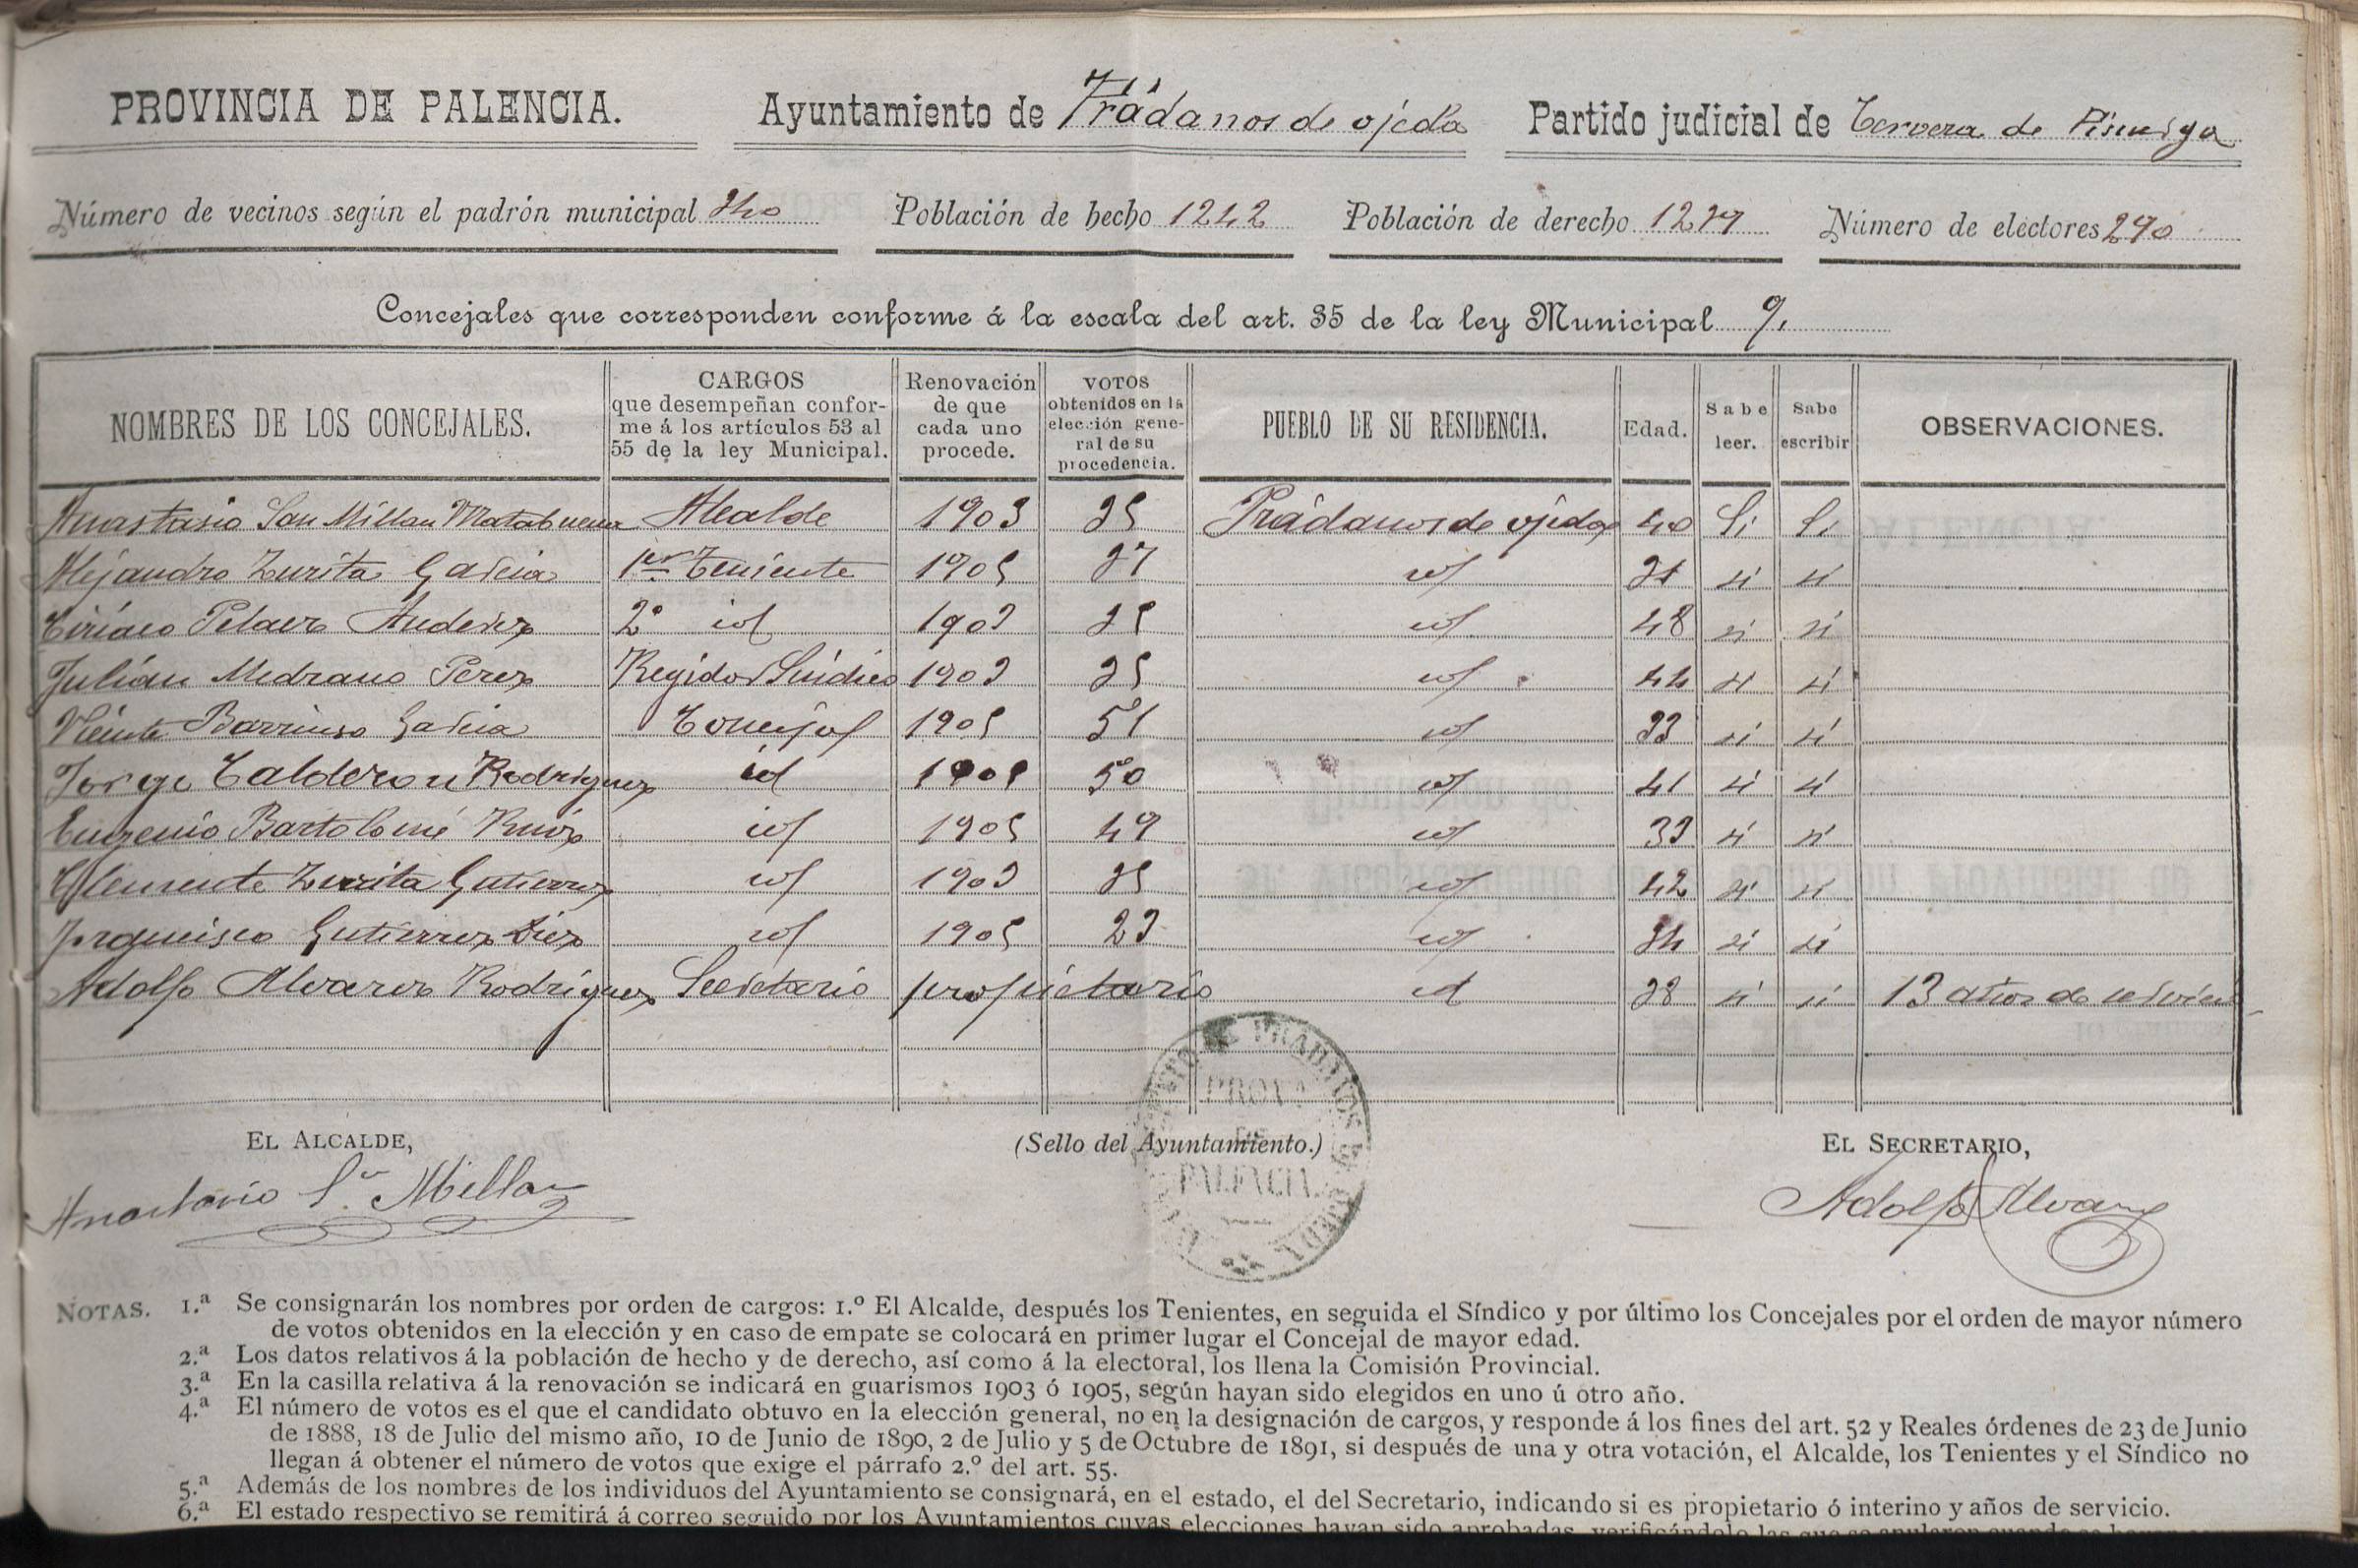 PROVINCIA DE PALENCIA. Ayuntamiento de Prádanos de ojeda Partido judicial de Cervera de Pisuerga
Número de vecinos según el padrón municipal Población de hecho 1242 Población de derecho Número de electores 290
Concejales que corresponden conforme á la escala del art. 35 de la ley Municipal 9.
NOMBRES DE LOS CONCEJALES. CARGOS que desempeñan conforme á los artículos 53 al 55 de la ley Municipal. Renovación de que cada uno procede. VOTOS obtenidos en la elección general de su procedencia. PUEBLO DE SU RESIDENCIA. Edad. Sabe leer. Sabe escribir OBSERVACIONES.
Anastasio San Millan Matabuena Alcalde 1903 25 Prádanos de ojeda 40 Si Si
Alejandro Zurita Garcia 1er Teniente 1905 27 id si si
Ciriaco Pelaez Anderez 2º id 1903 25 id 48 si si
Julián Medrano Perez Regidor Sindico 1903 25 id 44 si si
Vicente Barriuso Garcia Concejal 1905 51 id 33 si si
Jorge Calderon Rodriguez id 1905 50 id 41 si si
Eugenio Bartolomé Ruiz id 1905 49 id 33 si si
Clemente Zurita Gutierrez id 1903 25 id 42 si si
Francisco Gutierrez Diez id 1905 23 id 34 si si
Adolfo Alvarez Rodriguez Secretario propietario id 38 si si 13 años de servicio
EL ALCALDE, (Sello del Ayuntamiento.) EL SECRETARIO,
Anastasio Sn Millan Adolfo Alvarez
PROVA DE PALENCIA
NOTAS. 1.ª Se consignarán los nombres por orden de cargos: 1.º El Alcalde, después los Tenientes, en seguida el Síndico y por último los Concejales por el orden de mayor número
de votos obtenidos en la elección y en caso de empate se colocará en primer lugar el Concejal de mayor edad.
2.ª Los datos relativos á la población de hecho y de derecho, así como á la electoral, los llena la Comisión Provincial.
3.ª En la casilla relativa á la renovación se indicará en guarismos 1903 ó 1905, según hayan sido elegidos en uno ú otro año.
4.ª El número de votos es el que el candidato obtuvo en la elección general, no en la designación de cargos, y responde á los fines del art. 52 y Reales órdenes de 23 de Junio
de 1888, 18 de Julio del mismo año, 10 de Junio de 1890, 2 de Julio y 5 de Octubre de 1891, si después de una y otra votación, el Alcalde, los Tenientes y el Síndico no
llegan á obtener el número de votos que exige el párrafo 2.º del art. 55.
5.ª Además de los nombres de los individuos del Ayuntamiento se consignará, en el estado, el del Secretario, indicando si es propietario ó interino y años de servicio.
6.ª El estado respectivo se remitirá á correo seguido por los Ayuntamientos cuyas elecciones hayan sido aprobadas,